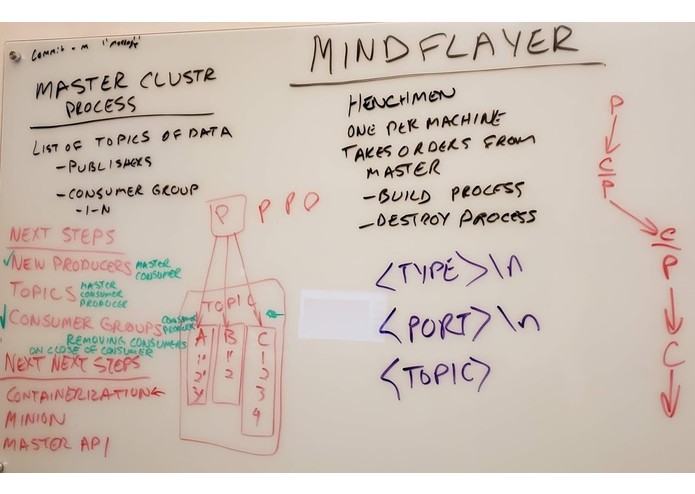 Commit -m "message"
MINDFLAYER
MASTER CLUSTR
PROCESS
LIST OF TOPICS OF DATA
-PUBLISHERS
-CONSUMER GROUP
-1-N
HENCHMEN
ONE PER MACHINE
TAKES ORDERS FROM
MASTER
-BUILD PROCESS
-DESTROY PROCESS
<TYPE>\n
<PORT>\n
<TOPIC>
NEXT STEPS
✓NEW PRODUCERS MASTER
CONSUMER
TOPICS MASTER
CONSUMER
PRODUCER
✓CONSUMER GROUPS CONSUMER
PRODUCER
REMOVING CONSUMERS
ON CLOSE OF CONSUMER
NEXT NEXT STEPS
CONTAINERIZATION←
MINION
MASTER API
P P P
TOPIC
A B C
1 1 1
2 2 2
3 3
4
P
C/P
C/P
C